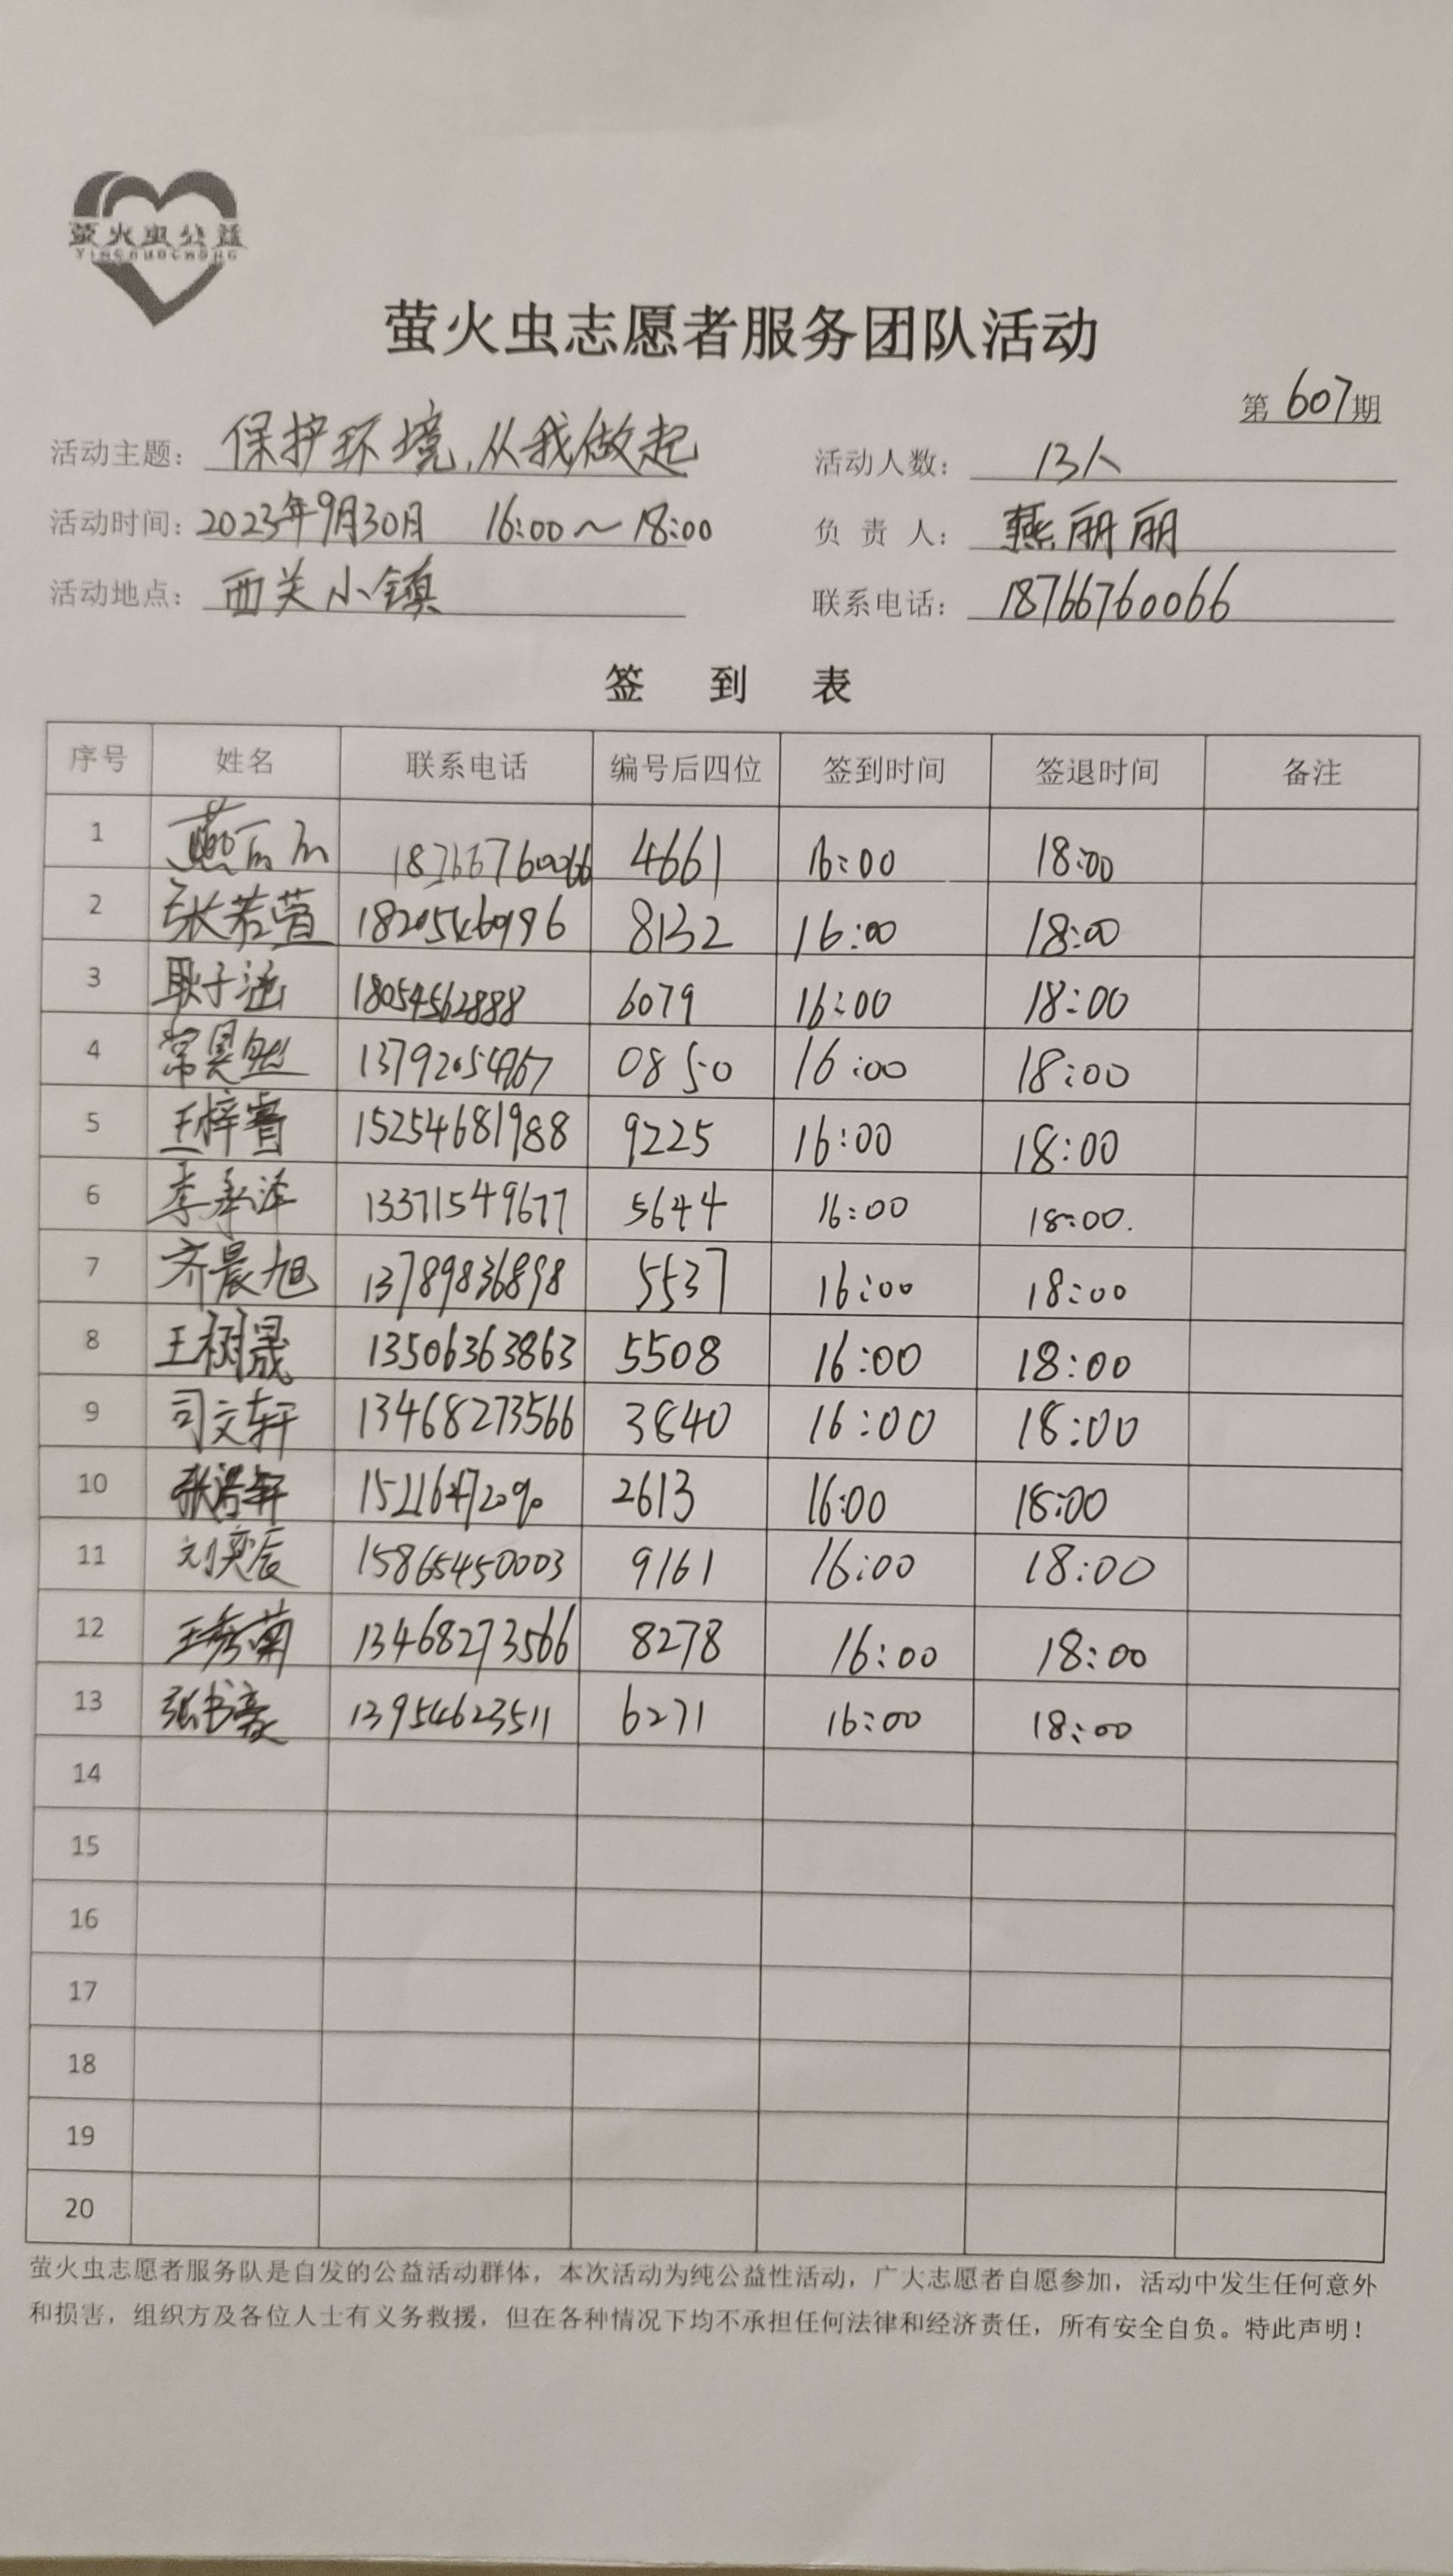 萤火虫公益
YINGHUOCHONG
萤火虫志愿者服务团队活动
第 607 期
活动主题： 保护环境,从我做起 活动人数： 13人
活动时间： 2023年9月30日 16:00～18:00 负 责 人： 燕丽丽
活动地点： 西关小镇 联系电话： 18766760066
签 到 表
序号 姓名 联系电话 编号后四位 签到时间 签退时间 备注
1 燕丽丽 18766760066 4661 16:00 18:00
2 张若萱 18205460196 8132 16:00 18:00
3 耿子涵 18054562888 6079 16:00 18:00
4 常昊然 0850 16:00 18:00
5 王梓睿 15254681988 9225 16:00 18:00
6 李承泽 13371549677 5644 16:00 18:00.
7 齐晨旭 13789836898 5537 16:00 18:00
8 王树晟 13506363863 5508 16:00 18:00
9 司文轩 13468273566 3840 16:00 18:00
10 2613 16:00 18:00
11 刘奕辰 15865450003 9161 16:00 18:00
12 王秀菊 13468273566 8278 16:00 18:00
13 张书豪 13954623511 6271 16:00 18:00
14
15
16
17
18
19
20
萤火虫志愿者服务队是自发的公益活动群体，本次活动为纯公益性活动，广大志愿者自愿参加，活动中发生任何意外
和损害，组织方及各位人士有义务救援，但在各种情况下均不承担任何法律和经济责任，所有安全自负。特此声明！